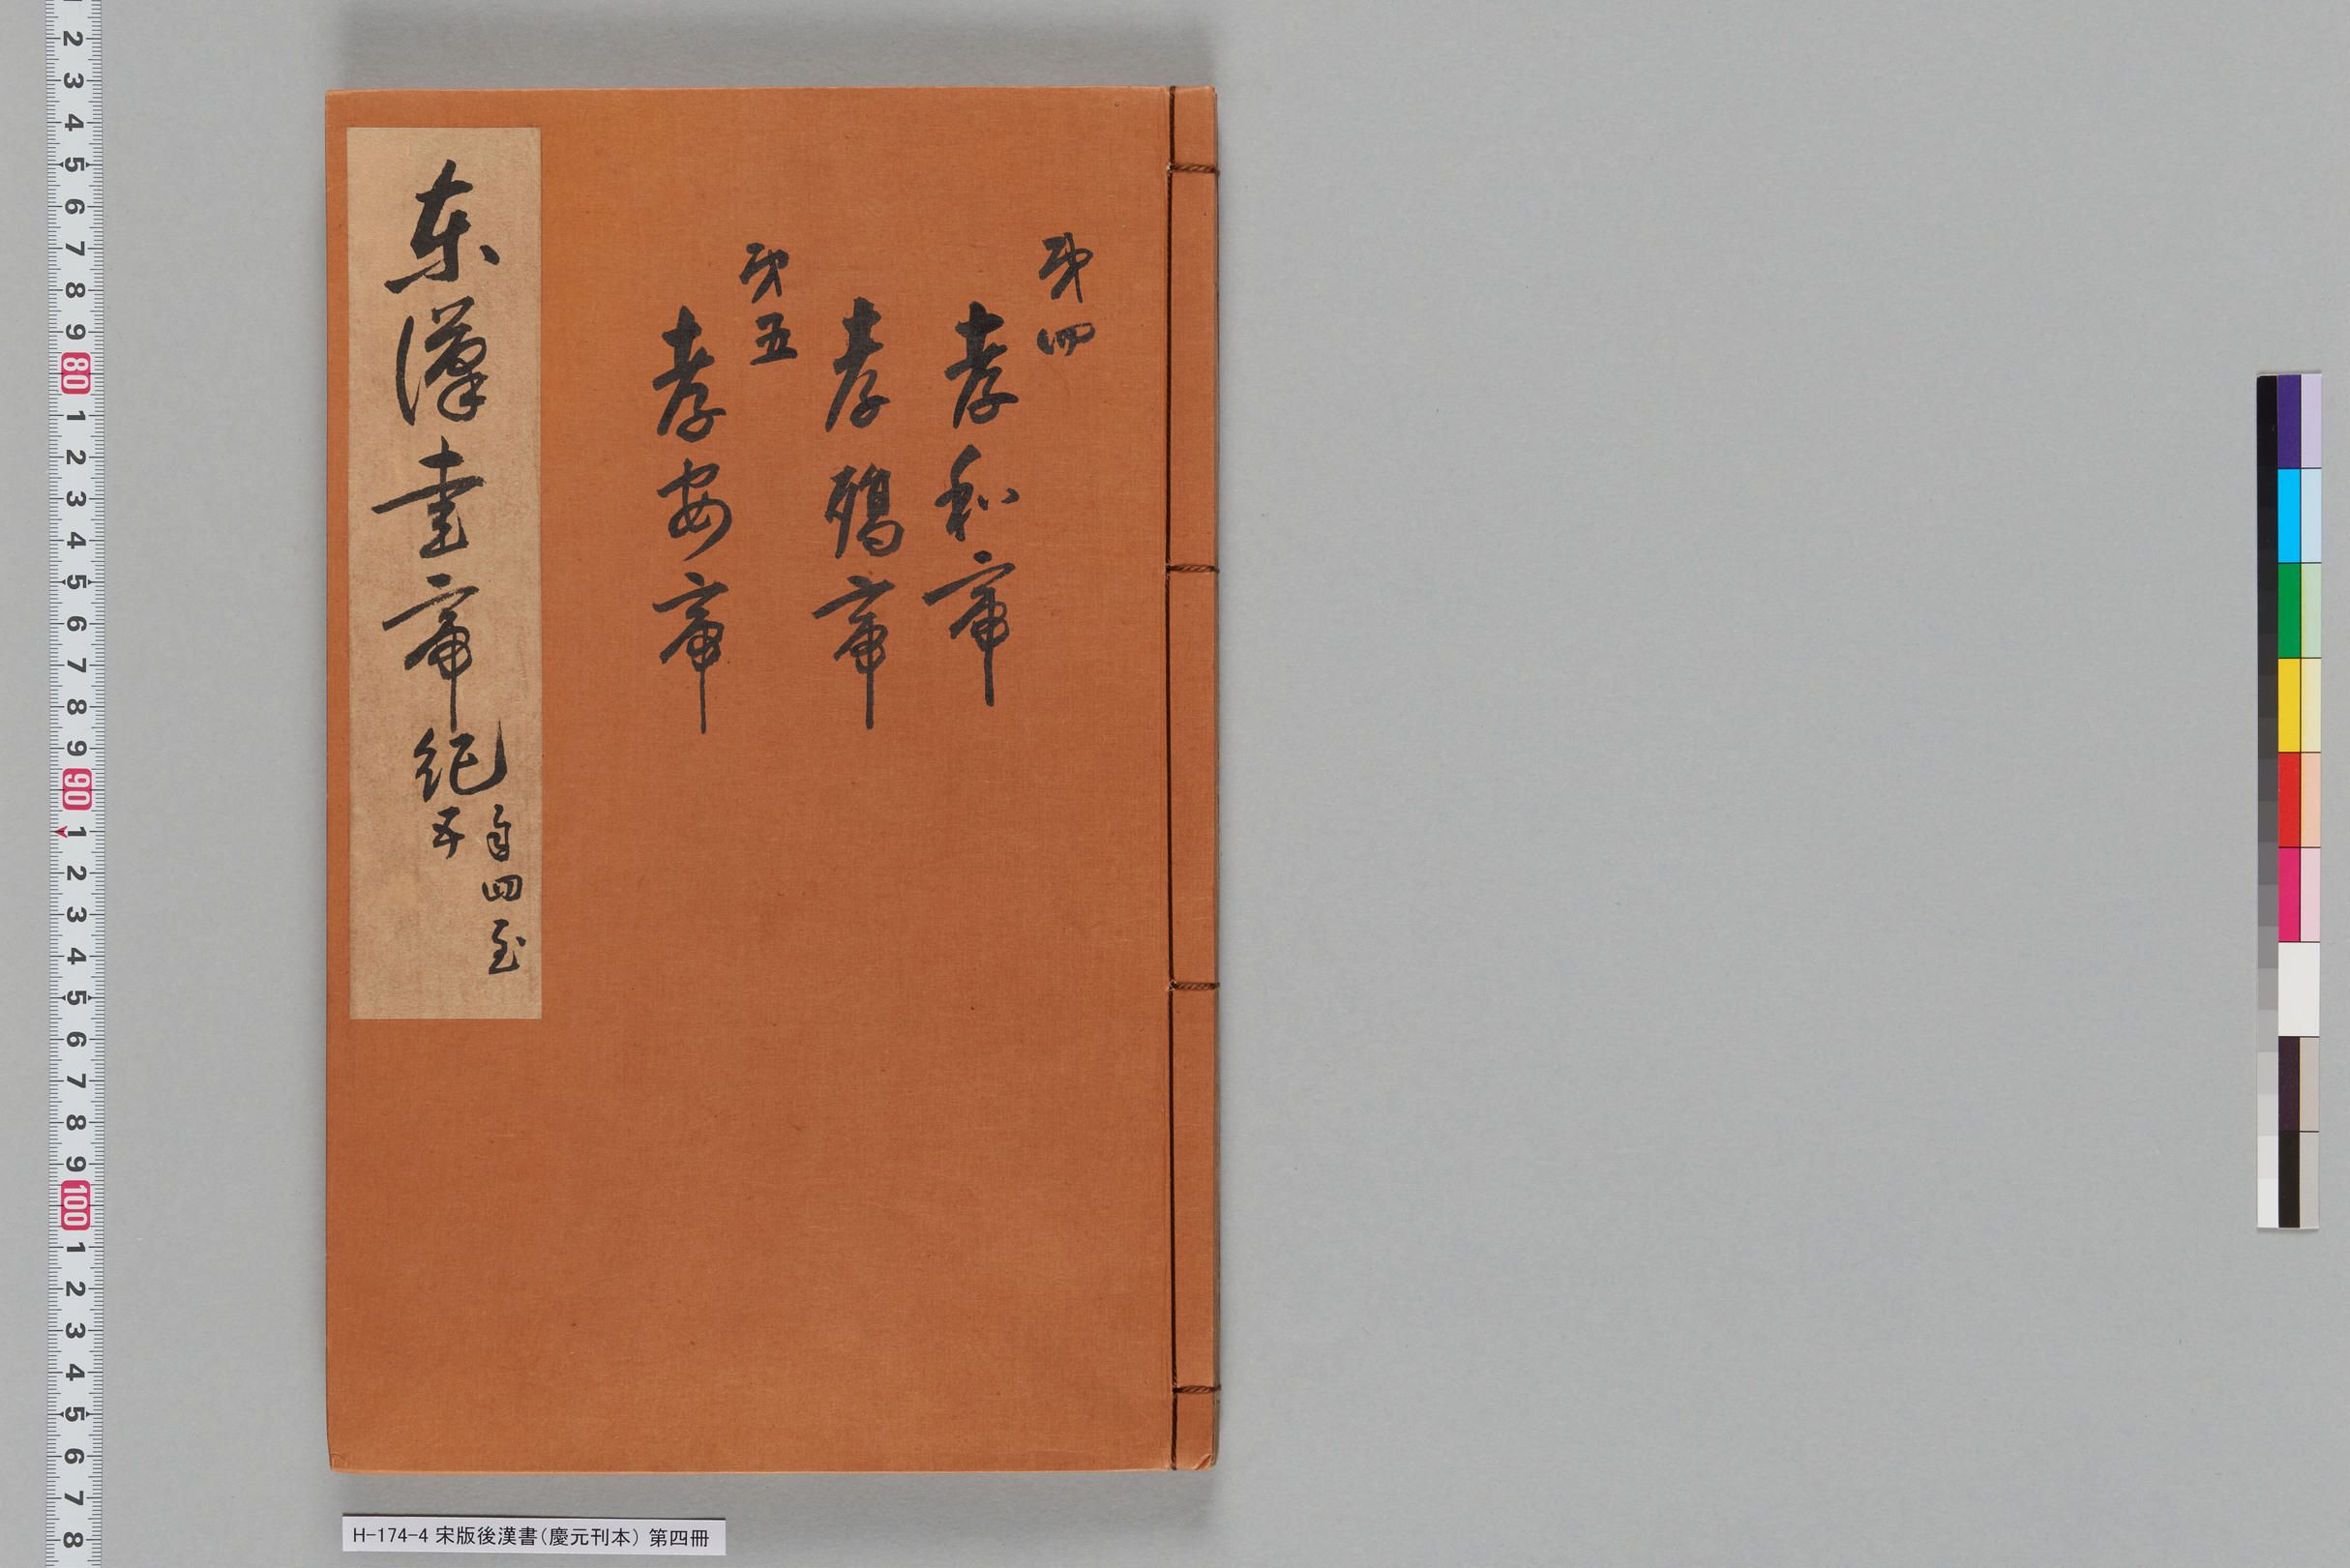 第四
孝和帝
孝殤帝
第五
孝安帝
東漢書帝紀
自四至
五
H-174-4 宋版後漢書(慶元刊本) 第四冊
2 3 4 5 6 7 8 9 80 1 2 3 4 5 6 7 8 9 90 1 2 3 4 5 6 7 8 9 100 1 2 3 4 5 6 7 8